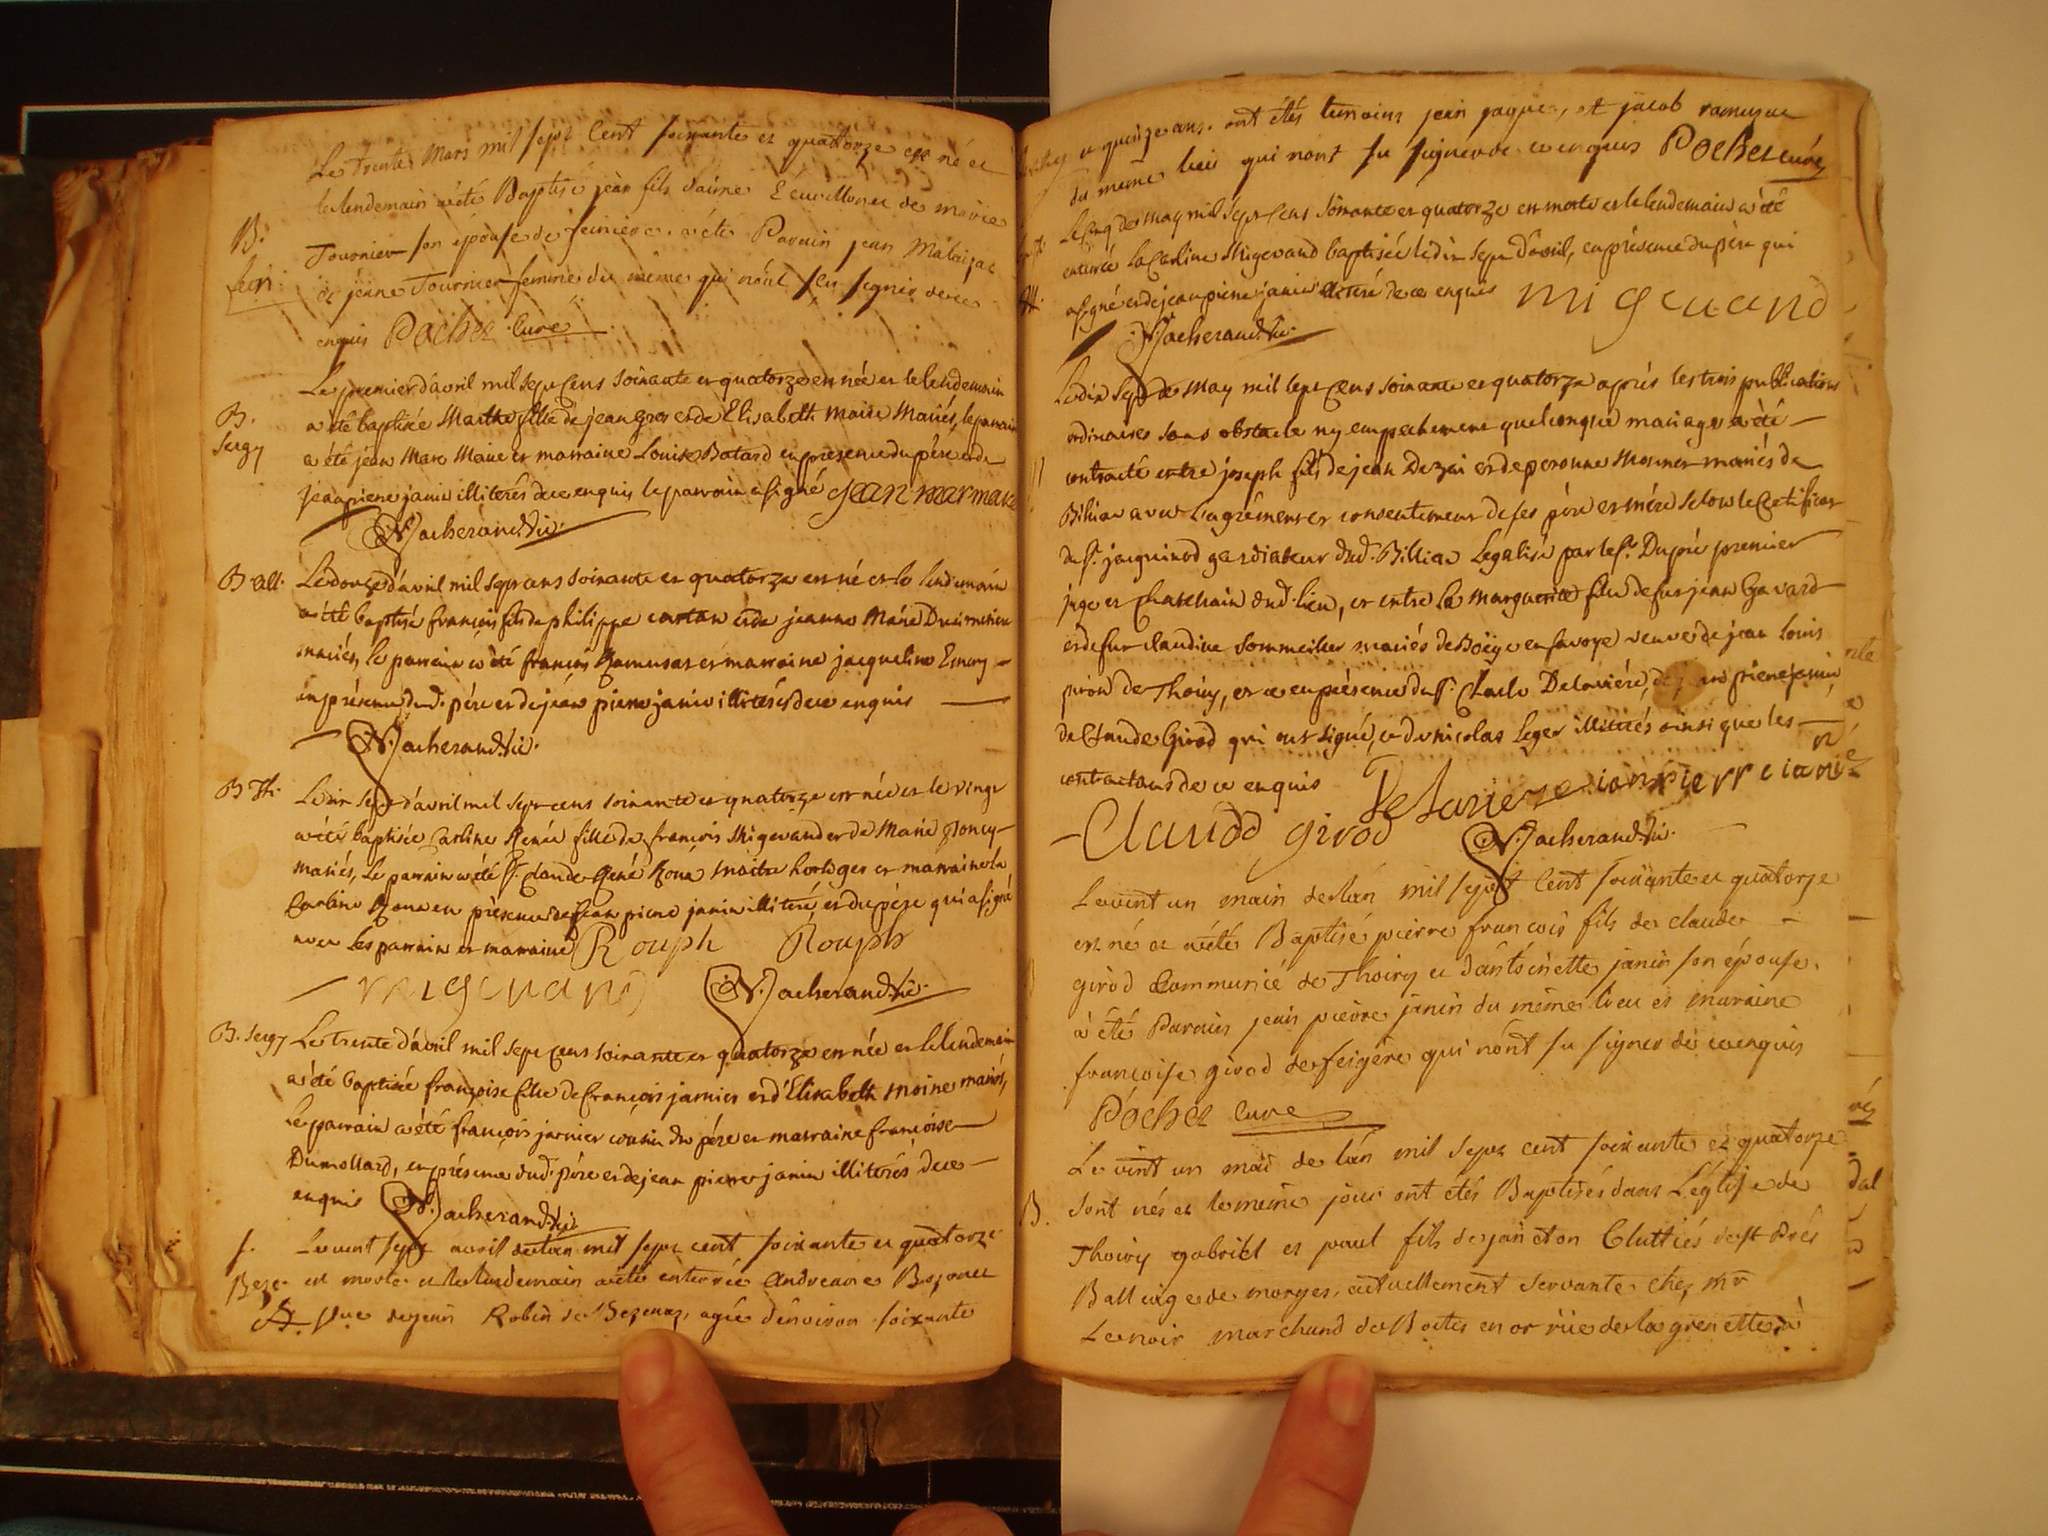 Le trente Mars mil sept Cent soixante et quatorze est né et
le lendemain a été Baptisé jean fils d'aimé Ecuvillonet de marie
B.
Tournier son épouse de feiniere. a été Parain jean
fein:
et jeane Tournier femme du même qui n'ont sçu signer de ce
enquis Pochet Curé
Le premier d'avril mil sept Cens soixante et quatorze est née et le lendemain
B.
a été baptisée Marthe fille de jean gros et de Elisabeth Maire Mariés, le parrain
Sergy
a été jean Marc Maire et marraine Louise Batard en presence du père et de
jean pierre janin illiterés de ce enquis le parrain a signé jean marc mare
N. Vacherand Vic:
B all. Le douze d'avril mil sept cens soixante et quatorze est né et le lendemain
a été baptisé françois fils de philippe cartan et de jeanne Marie
mariés, le parrain a été françois Ramusat et marraine jacqueline Emery
en présence dud. père et de jean pierre janin illiterés de ce enquis
N. Vacherand Vic:
B Th: Le dix sept d'avril mil sept cens soixante et quatorze est née et le vingt
a été baptisée Carline Renée fille de françois Migevand et de Marie Poncy
Mariés, Le parrain a été Sr. Claude René Roux maitre horloger et marraine la
Carline Roux en présence de jean pierre janin illiteré, et du père qui a signé
avec les parrain et marraine Rouph Rouph
migevand N. Vacherand Vic:
B. Sergy Le trente d'avril mil sept Cens soixante et quatorze est née et le lendemain
a été baptisée françoise fille de françois jarnier et d'Elisabeth Moine mariés,
Le parrain a été françois jarnier cousin du père et marraine françoise
Dumollard, en présence dud. père et de jean pierre janin illiterés de ce
enquis N. Vacherand Vic:
f. Le vent sept avril de l'an mil sept cent soixante et quatorze
Beze: est morte et le lendemain a été enterrée Andreane Bozonet
A. fue de jean Robin de Bezenaz, agée d'environ soixante
et quinze ans. ont étés temoins jean jaques, et jacob ramusat
du meme lieu qui n'ont su signer de ce enquis Pochet curé
Le cinq de may mil sept Cens soixante et quatorze est morte et le lendemain a été
enterrée la Carline Migevand baptisée le dix sept d'avril, en présence du père qui
a signé et de jean pierre janin illiteré de ce enquis migevand
N. Vacherand Vic:
Le dix sept de May mil sept Cens soixante et quatorze aprés les trois publications
ordinaires sans obstacle ny empechement quelconque mariage a été
contracté entre joseph fils de jean Dezai et de peronne Monner mariés de
Billiat avec l'agrément et consentement de ses père et mère selon le Certificat
de Sr. jacquinod gardiateur dud. Billiat Legalisé par le Sr. Dupré premier
juge et Chatelain dud. lieu, et entre la marguerite fille de fut jean Gavard
et de fut Claudine Sommeiller mariés de Boëge en Savoye veuve de jean louis
girod de Thoiry, et ce en présence du Sr. Charle Delaviere, de jean pierre janin
de Claude Girod qui ont signé, et de nicolas Leger illiterés ainsi que les
contractans de ce enquis Delaviere jean pierre janin
Claude girod N. Vacherand Vic:
Le vent un mais de l'an mil sept Cent soixante et quatorze
est né et a été Baptisé pierre françois fils de claude
girod Communié de Thoiry et d'antoinette janin son épouse.
a été Parain jean pierre janin du même lieu et maraine
françoise girod de feigére qui n'ont su signer de ce enquis
Pochet Curé
Le vint un mai de l'an mil sept cent soixante et quatorze
B. Sont nés et le meme jour ont étés Baptisés dans L'église de
Thoiry gabriel et paul fils de janeton Cluttiés de St Prés
Balliage de morges, actuellement servante chez Mr
Lenoir marchand de Boites en or rüe de la grenette à